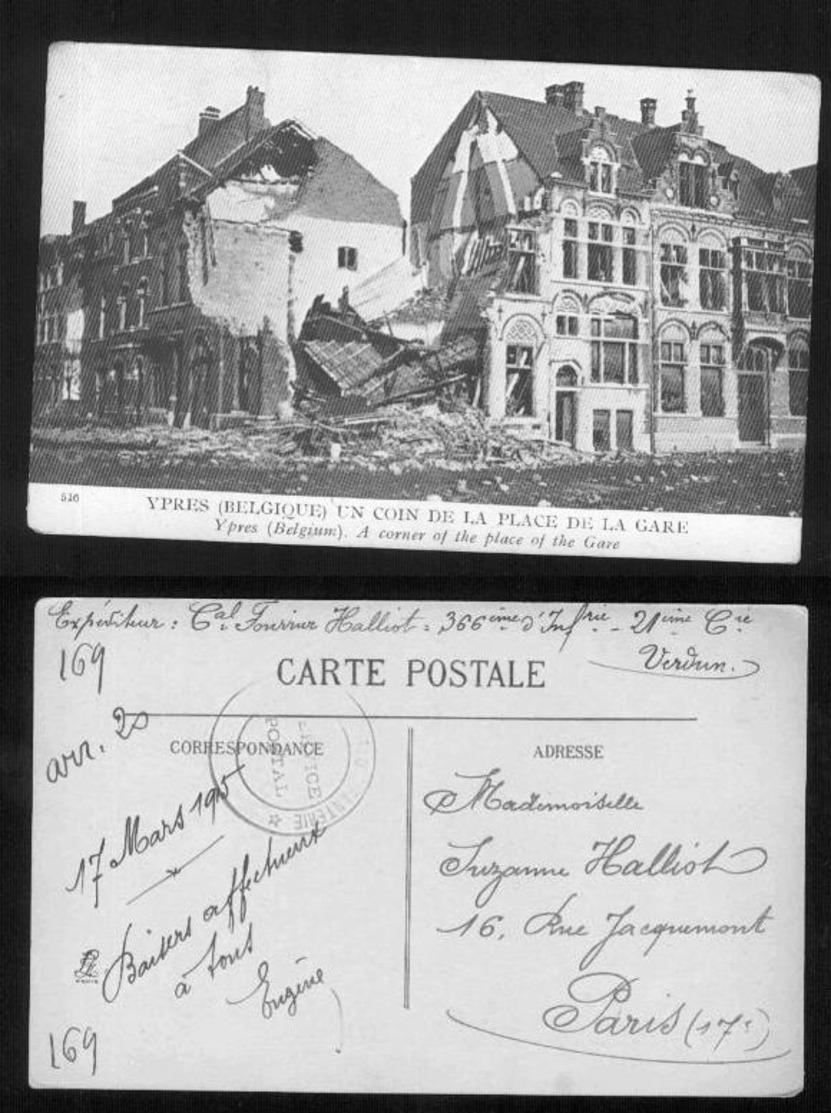 516
YPRES (BELGIQUE) UN COIN DE LA PLACE DE LA GARE
Ypres (Belgium). A corner of the place of the Gare
Expéditeur : Cal Fourrier Halliot = 366ème d'Infrie - 21ème Cie
Verdun.
169
CARTE POSTALE
arr. 20
CORRESPONDANCE
POSTAL
ADRESSE
17 Mars 1915
Baisers affectueux
à tous
Eugène
169
Mademoiselle
Suzanne Halliot
16, Rue Jacquemont
Paris (17e)